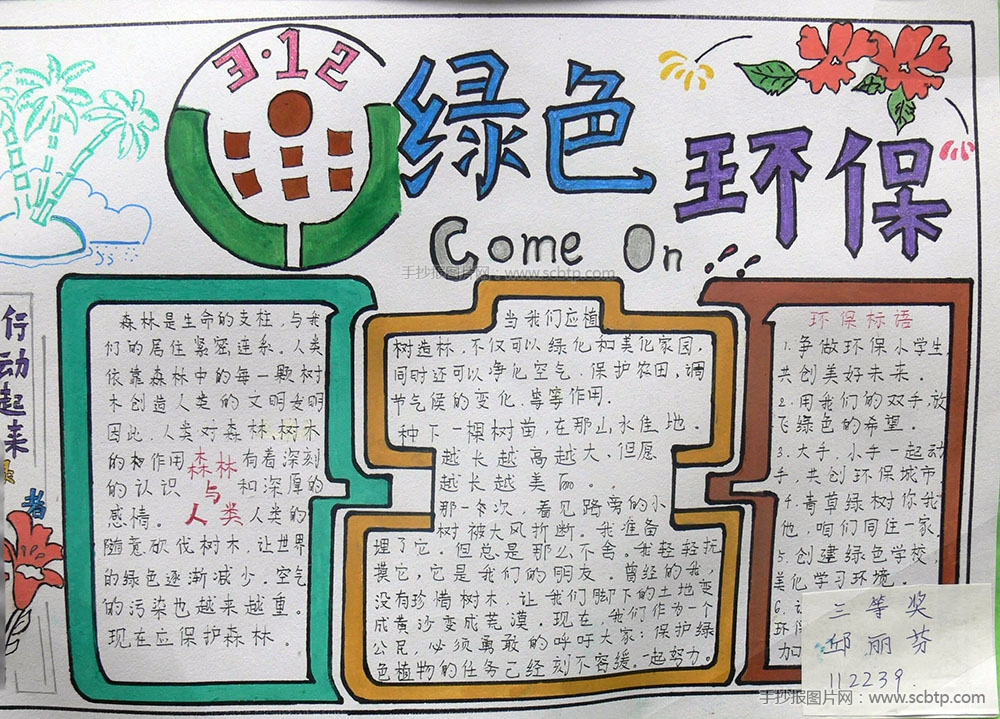 3·12
绿色
环保
Come On
手抄报图片网：www.scbtp.com
行动起来
者
森林是生命的支柱，与我
们的居住紧密连系。人类
依靠森林中的每一颗树
木创造人类的文明发明
因此，人类对森林.树木
的和作用 森林 有着深刻
的认识 与 和深厚的
感情。 人类 人类的
随意砍伐树木，让世界
的绿色逐渐减少。空气
的污染也越来越重。
现在应保护森林。
当我们应植
树造林，不仅可以绿化和美化家园，
同时还可以净化空气、保护农田，调
节气候的变化、等等作用.
种下一棵树苗，在那山水佳地。
越长越高越大、但愿
越长越美丽。
那一次，看见路旁的小
树被大风折断。我准备
埋了它，但总是那么不舍。我轻轻抚
摸它，它是我们的朋友。曾经的我，
没有珍惜树木，让我们脚下的土地变
成黄沙变成荒漠。现在，我们作为一个
公民，必须勇敢的呼吁大家：保护绿
色植物的任务已经刻不容缓。一起努力。
环保标语
1.争做环保小学生，
共创美好未来。
2.用我们的双手，放
飞绿色的希望。
3.大手，小手一起动
手，共创环保城市
4.青草绿树你我
他，咱们同住一家
5.创建绿色学校，
美化学习环境。
6.
环保
加
三等奖
邱丽芬
112239.
手抄报图片网：www.scbtp.com